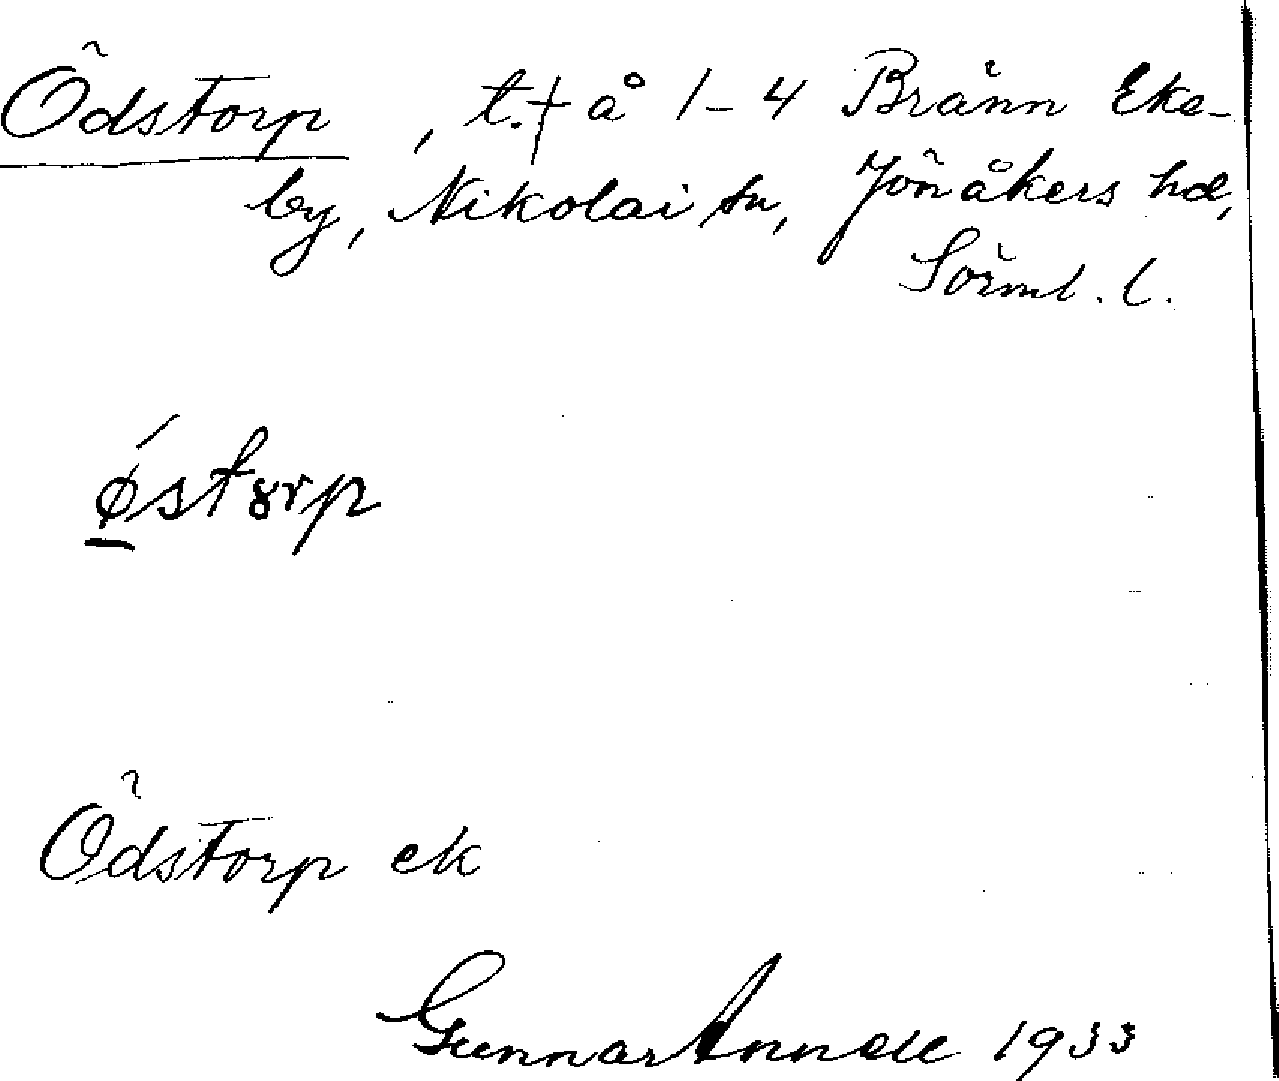 Ödstorp, t.† å 1-4 Bränn Eke-
by, Nikolai sn, Jönåkers hd,
Sörml. l.
ǿstɤrp
Ödstorp ek
Gunnar Annell 1933